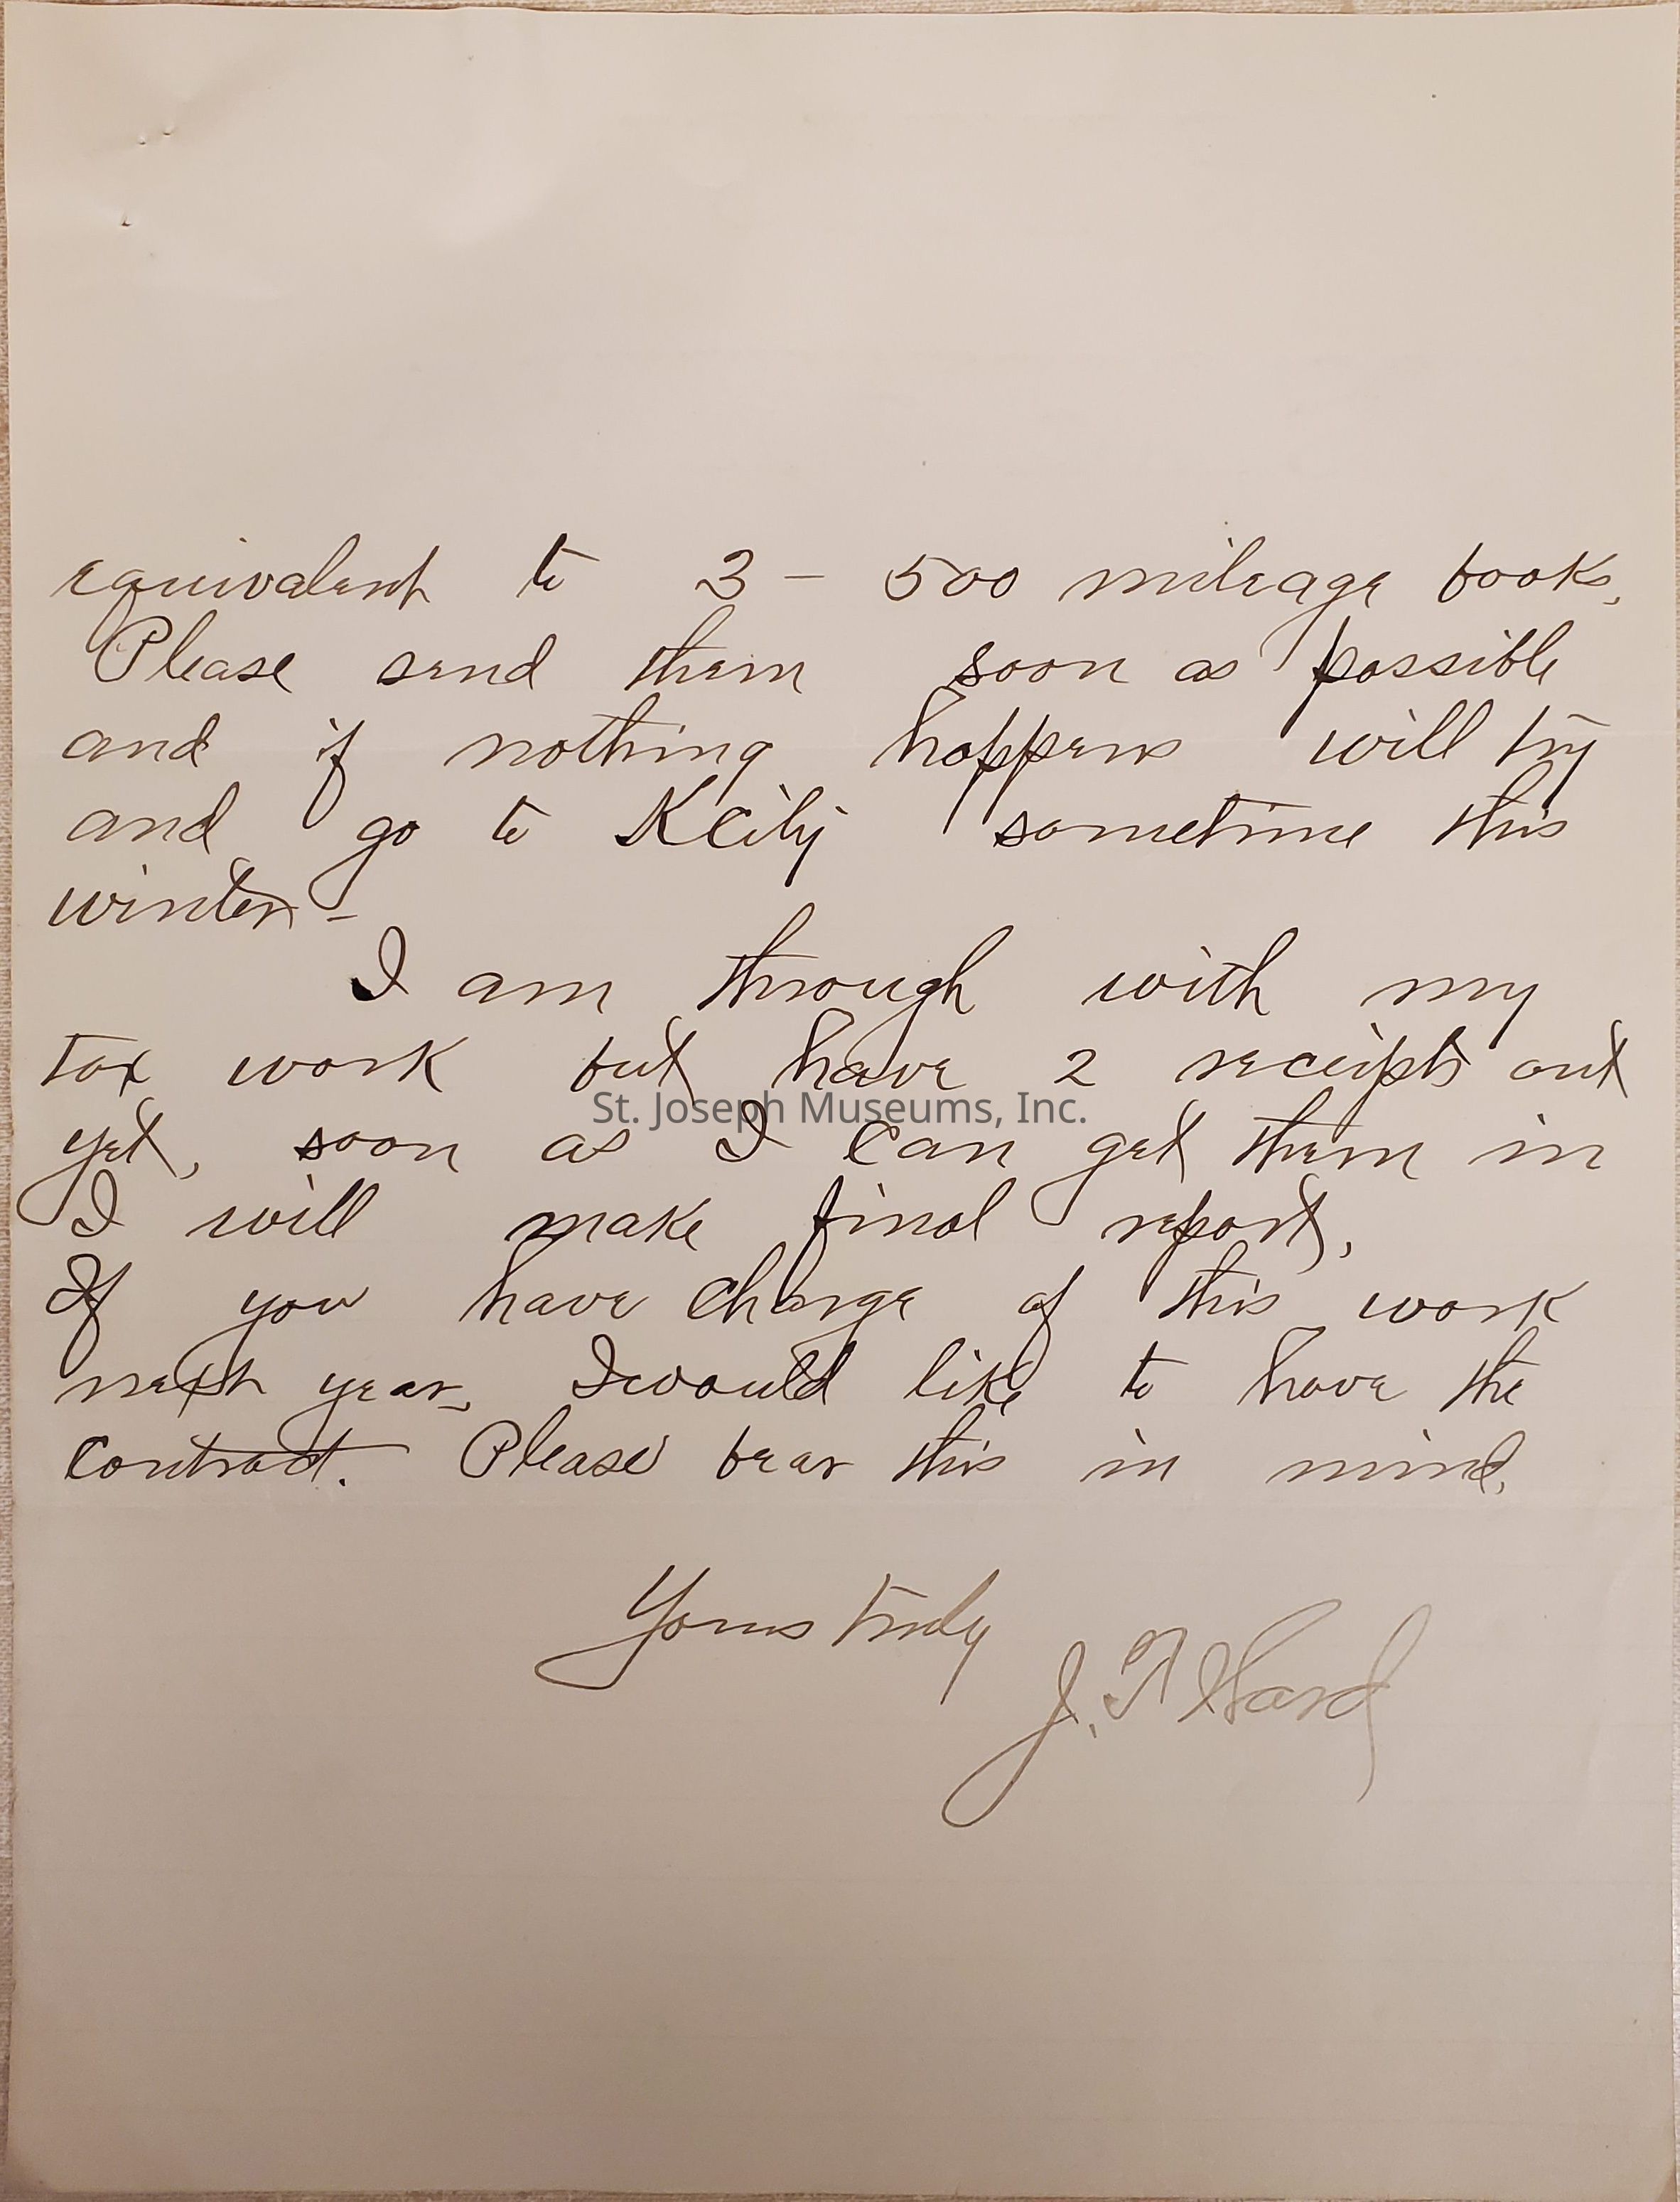 equivalent to 3 - 500 mileage books.
Please send them soon as possible
and if nothing happens will try
and go to KCity sometime this
winter -
I am through with my
tax work but have 2 receipts out
yet, soon as I can get them in
I will make final report,
If you have charge of this work
next year, I would like to have the
contract. Please bear this in mind.
Yours truly
J. T. Ward
St. Joseph Museums, Inc.